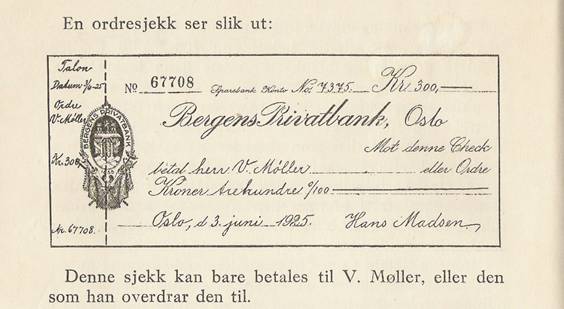 En ordresjekk ser slik ut:
Talon
Datum 3/6-25
Ordre
V. Møller
Kr. 300
Nr. 67708.
BERGENS PRIVATBANK
No 67708 Sparebank Konto No. 7375. Kr. 300,—
Bergens Privatbank, Oslo
Mot denne Check
betal herr V. Møller eller Ordre
Kroner trehundre 0/100
Oslo, d 3. juni 1925. Hans Madsen
Denne sjekk kan bare betales til V. Møller, eller den
som han overdrar den til.